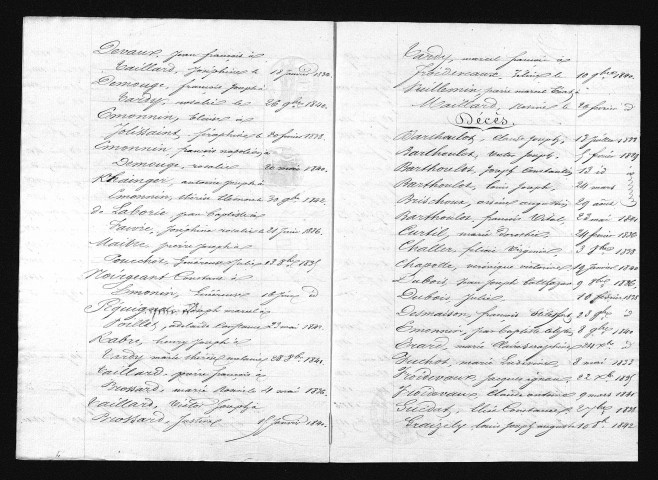 Devaux, Jean françois à
Taillard, Joséphine le 18 janvier 1830.
Demouge, françois Joseph à
Tardy, rosalie le 26 9bre 1840.
Emonnin, Claire à
Jolissaint, Séraphine le 20 février 1838.
Emonnin françois napoléon, à
Demouge, rosalie 20 mai 1840.
Khainger, antoine joseph à
Emonnin, thérèse Clémence 30 9bre 1842.
de Laborie jean baptiste à
Favre, Joséphine rosalie le 21 juin 1836.
Maitre, pierre joseph à
Pouchot, Généreuse Julie 13 8bre 1835
Noirjeant Constant à
Emonin, Généreuse 16 juin d
Piquignot, Joseph marcel à
Voilles, adelaide 23 mai 1842.
Rabre, henry joseph à
Tardy marie thérèse antoine 28 8bre 1841.
Taillard, pierre françois à
Brossard, marie 4 mai 1836.
Taillard, Victor Joseph à
Brossard, Justine 15 janvier 1840.
Tardy, marcel françois à
Froidevaux, félicité le 10 9bre 1840.
Vuillemin, pierre marcel à
Maillard, le 20 février d
Décès.
Barthoulot, Claude Joseph, 13
Barthoulot, Victor Joseph, 5 février 1835
Barthoulot, Joseph Constantin, 13 id
Barthoulot, Louis Joseph, 24 mars
Brischoux, arsène augustin 29 aout
Barthoulot, françois Vital, 23 mai 1841
Curtil, marie dorothée 24 février 1836
Challer, félicie Virginie, 3 9bre 1838
Chapotte, véronique victoire, 19 janvier 1840
Dubois, jean joseph balthazar 9 8bre 1836,
Dubois, Julie, 10 février 1838
Desmaison, françois 28 8bre d
Emonnin, jean baptiste 8 9bre 1840
Erard, marie 24 Xbre d
Guthot, marie Ludivine, 8 mai 1833
Froidevaux, Jacques ignace, 22 Xbre 1835
Froidevaux, Claude antoine 9 mars 1841
Guédat, Elise Constance, 27 7bre 1838
Trouzely louis Joseph auguste 10 8bre 1842